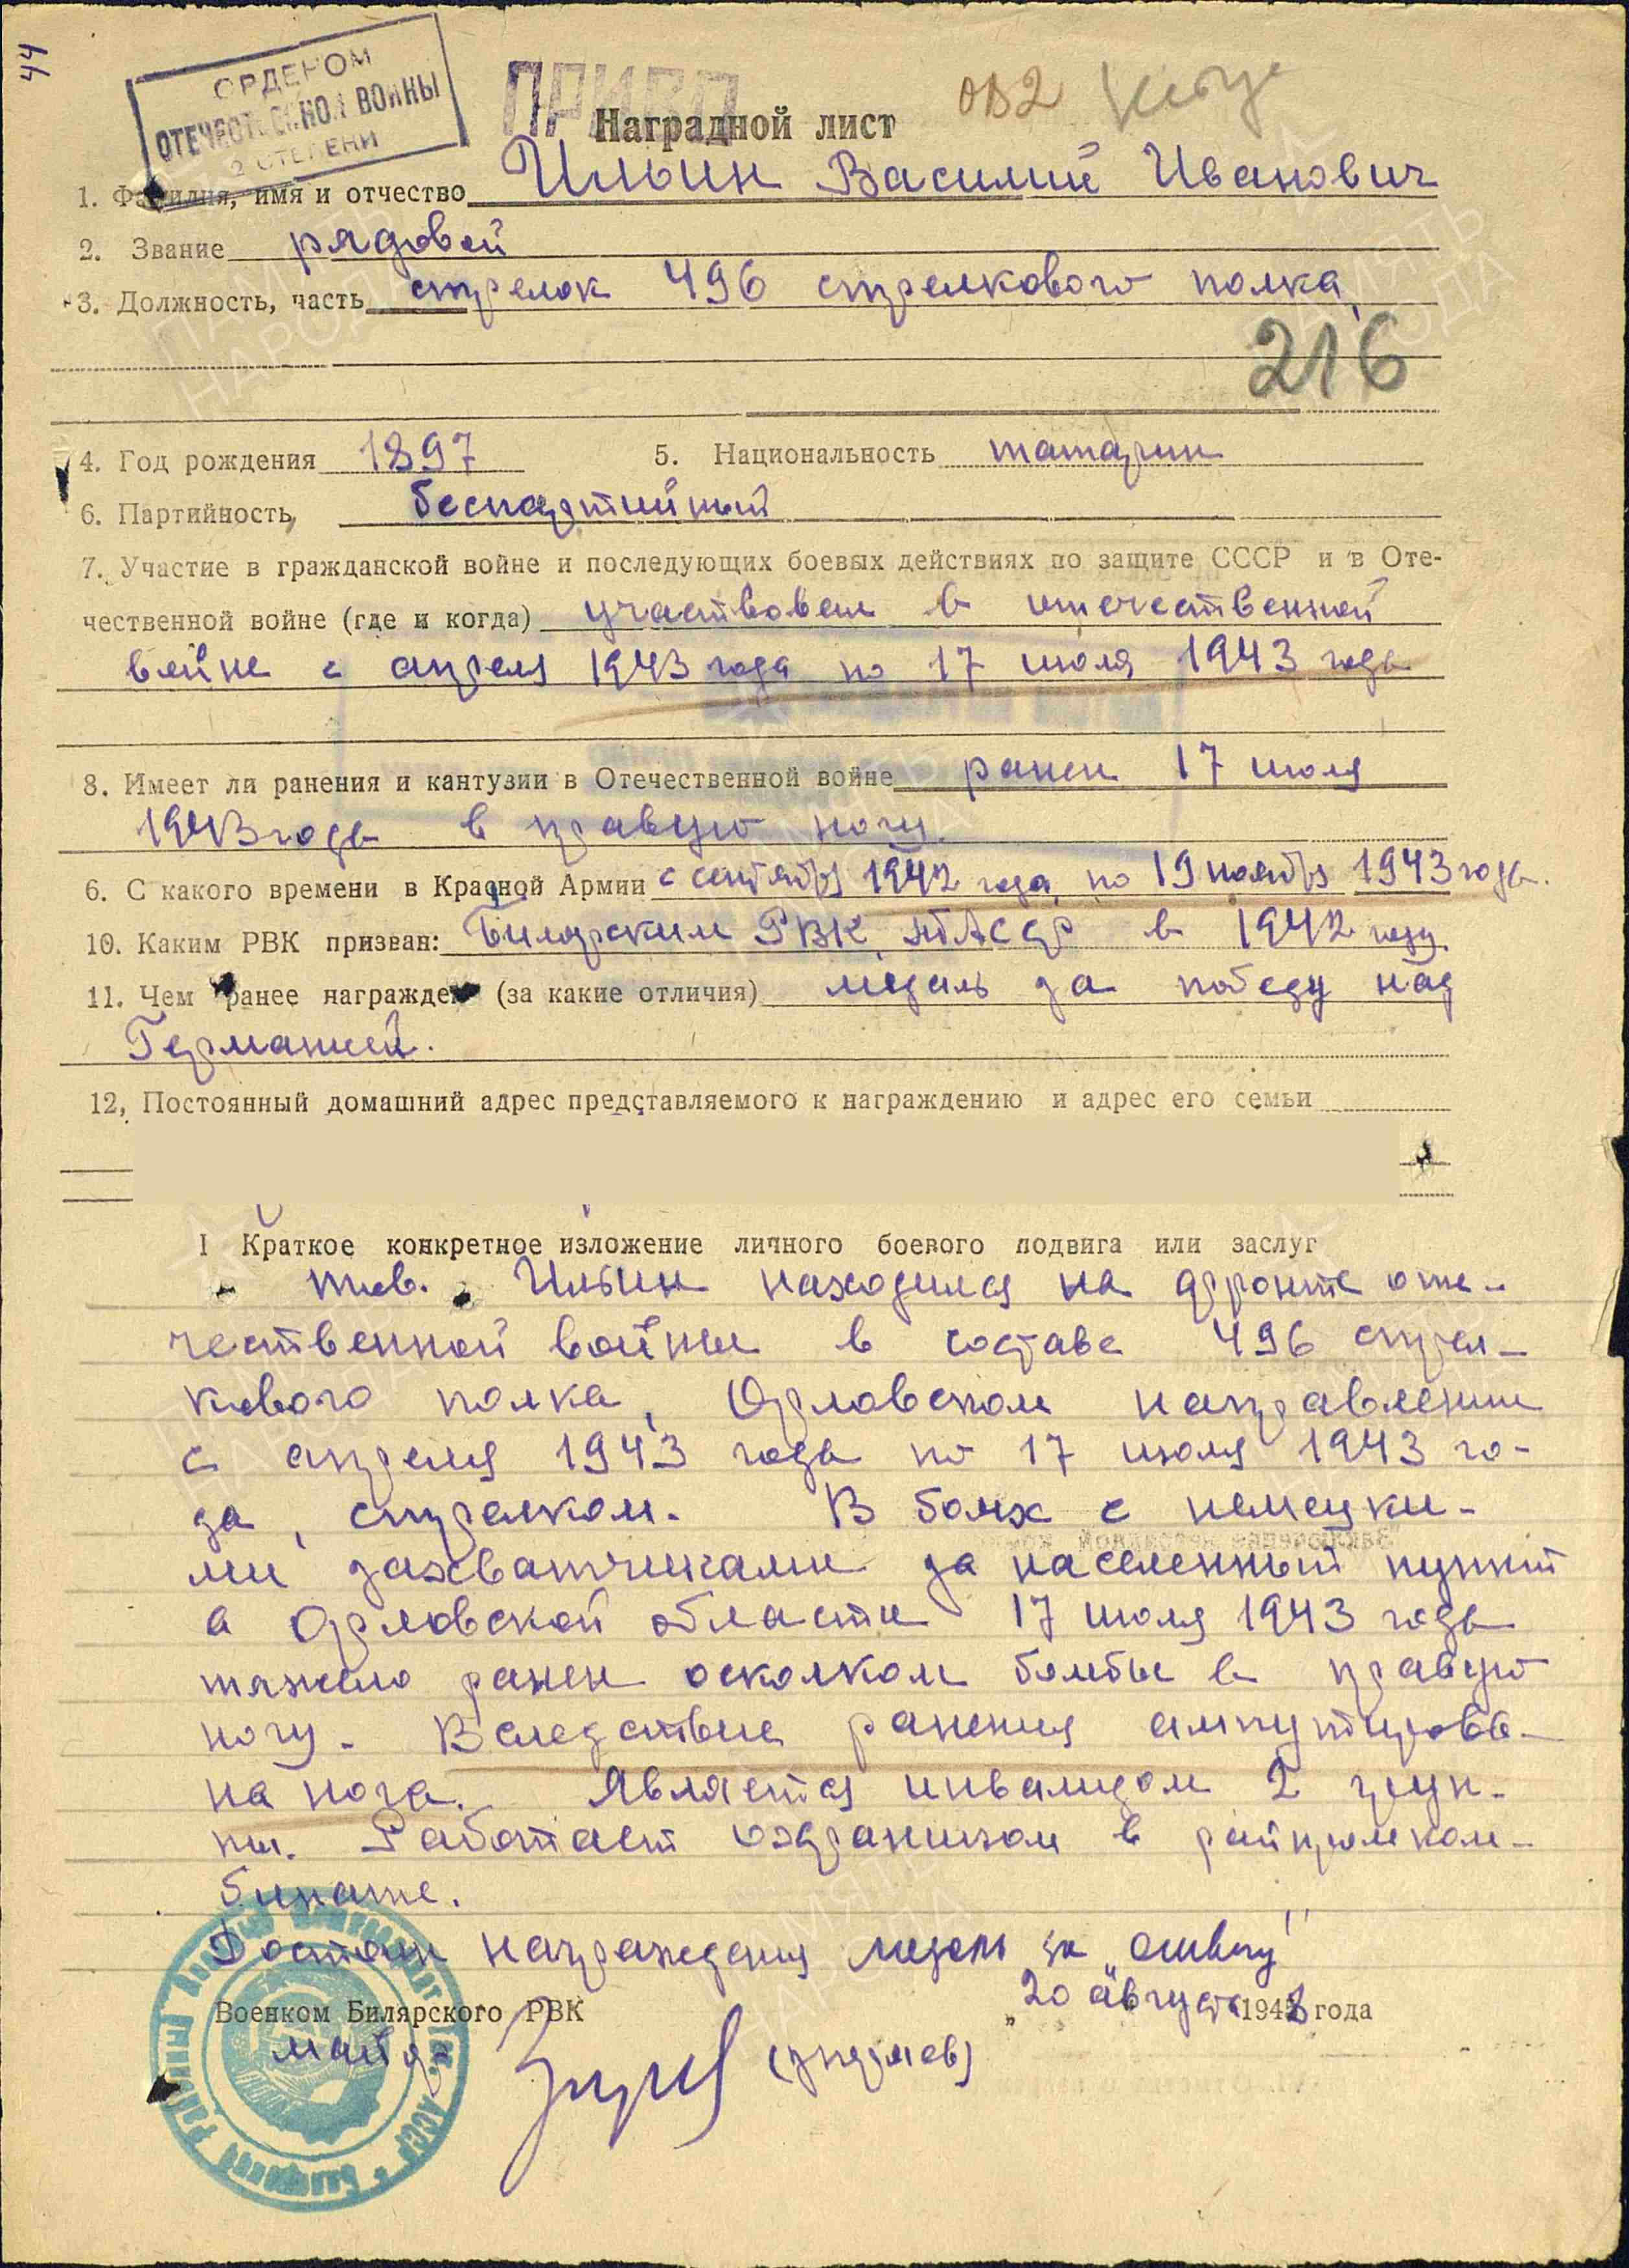 44
ОРДЕНОМ
ОТЕЧЕСТВЕННОЙ ВОЙНЫ
2 СТЕПЕНИ
ОВ2
Наградной лист
1. Фамилия, имя и отчество Ильин Василий Иванович
2. Звание рядовой
3. Должность, часть стрелок 496 стрелкового полка
216
4. Год рождения 1897 5. Национальность татарин
6. Партийность беспартийный
7. Участие в гражданской войне и последующих боевых действиях по защите СССР и в Оте-
чественной войне (где и когда) участвовал в отечественной
войне с апреля 1943 года по 17 июля 1943 года
8. Имеет ли ранения и кантузии в Отечественной войне ранен 17 июля
1943 года в правую ногу.
6. С какого времени в Красной Армии с сентября 1942 года по 19 ноября 1943 года.
10. Каким РВК призван: Билярским РВК ТАССР в 1942 году.
11. Чем ранее награжден (за какие отличия) медаль за победу над
Германией.
12, Постоянный домашний адрес представляемого к награждению и адрес его семьи
I Краткое конкретное изложение личного боевого подвига или заслуг
тов. Ильин находился на фронте оте-
чественной войны в составе 496 стрел-
кового полка, Орловском направлении
с апреля 1943 года по 17 июля 1943 го-
да, стрелком. В боях с немецки-
ми захватчиками за населенный пункт
в Орловской области 17 июля 1943 года
тяжело ранен осколком бомбы в правую
ногу. Вследствие ранения ампутирова-
на нога. Является инвалидом 2 груп-
пы. Работает охранником в райпромком-
бинате.
Достоин награждения медаль за „отвагу"
Военком Билярского РВК „20 августа 1948 года
майор